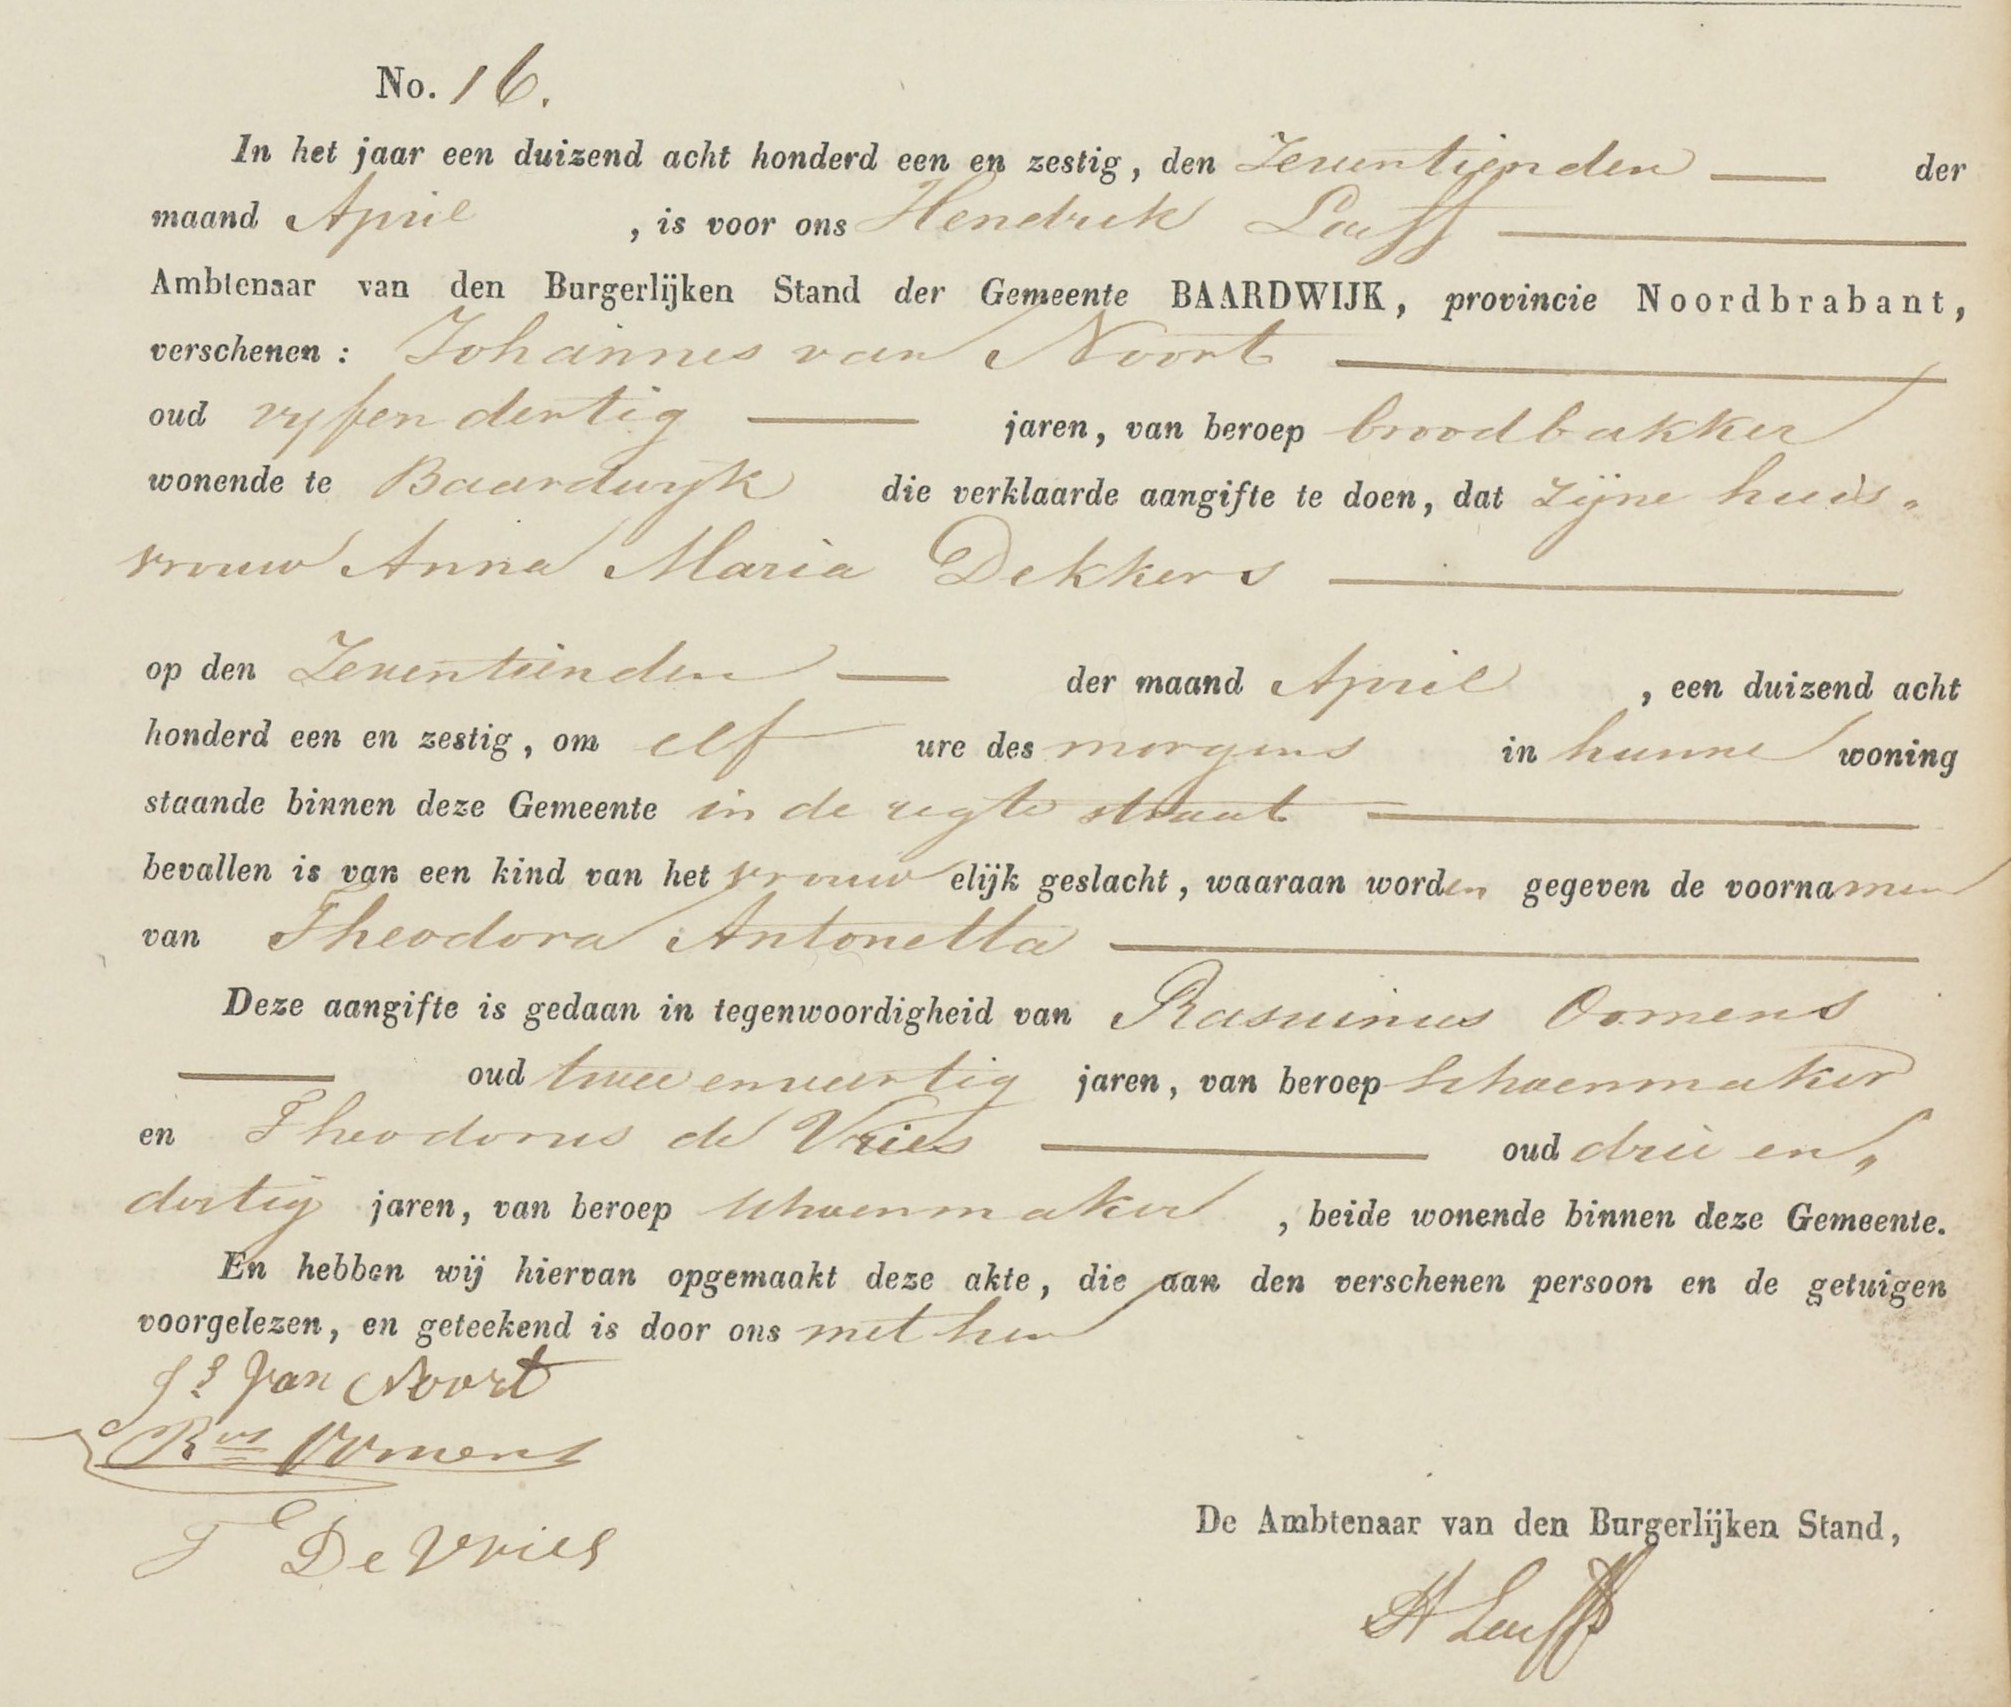 No. 16.
In het jaar een duizend acht honderd een en zestig, den Zeventienden der
maand April , is voor ons Hendrik
Ambtenaar van den Burgerlijken Stand der Gemeente BAARDWIJK, provincie Noordbrabant,
verschenen : Johannes van Noort
oud vyfen dertig jaren, van beroep broodbakker
wonende te Baardwyk die verklaarde aangifte te doen, dat zijne huis-
vrouw Anna Maria Dekkers
op den Zeventienden der maand April , een duizend acht
honderd een en zestig, om elf ure des morgens in hunne woning
staande binnen deze Gemeente in de regte straat
bevallen is van een kind van het vrouwelijk geslacht, waaraan worden gegeven de voornamen
van Theodora Antonetta
Deze aangifte is gedaan in tegenwoordigheid van Rasuinus Oomens
oud twee enveertig jaren, van beroep schoenmaker
en Theodorus de Vries oud drie en„
dertig jaren, van beroep schoenmaker , beide wonende binnen deze Gemeente.
En hebben wij hiervan opgemaakt deze akte, die aan den verschenen persoon en de getuigen
voorgelezen, en geteekend is door ons met hen
Js Van Noort
Rus Oomens
T De Vries
De Ambtenaar van den Burgerlijken Stand,
H